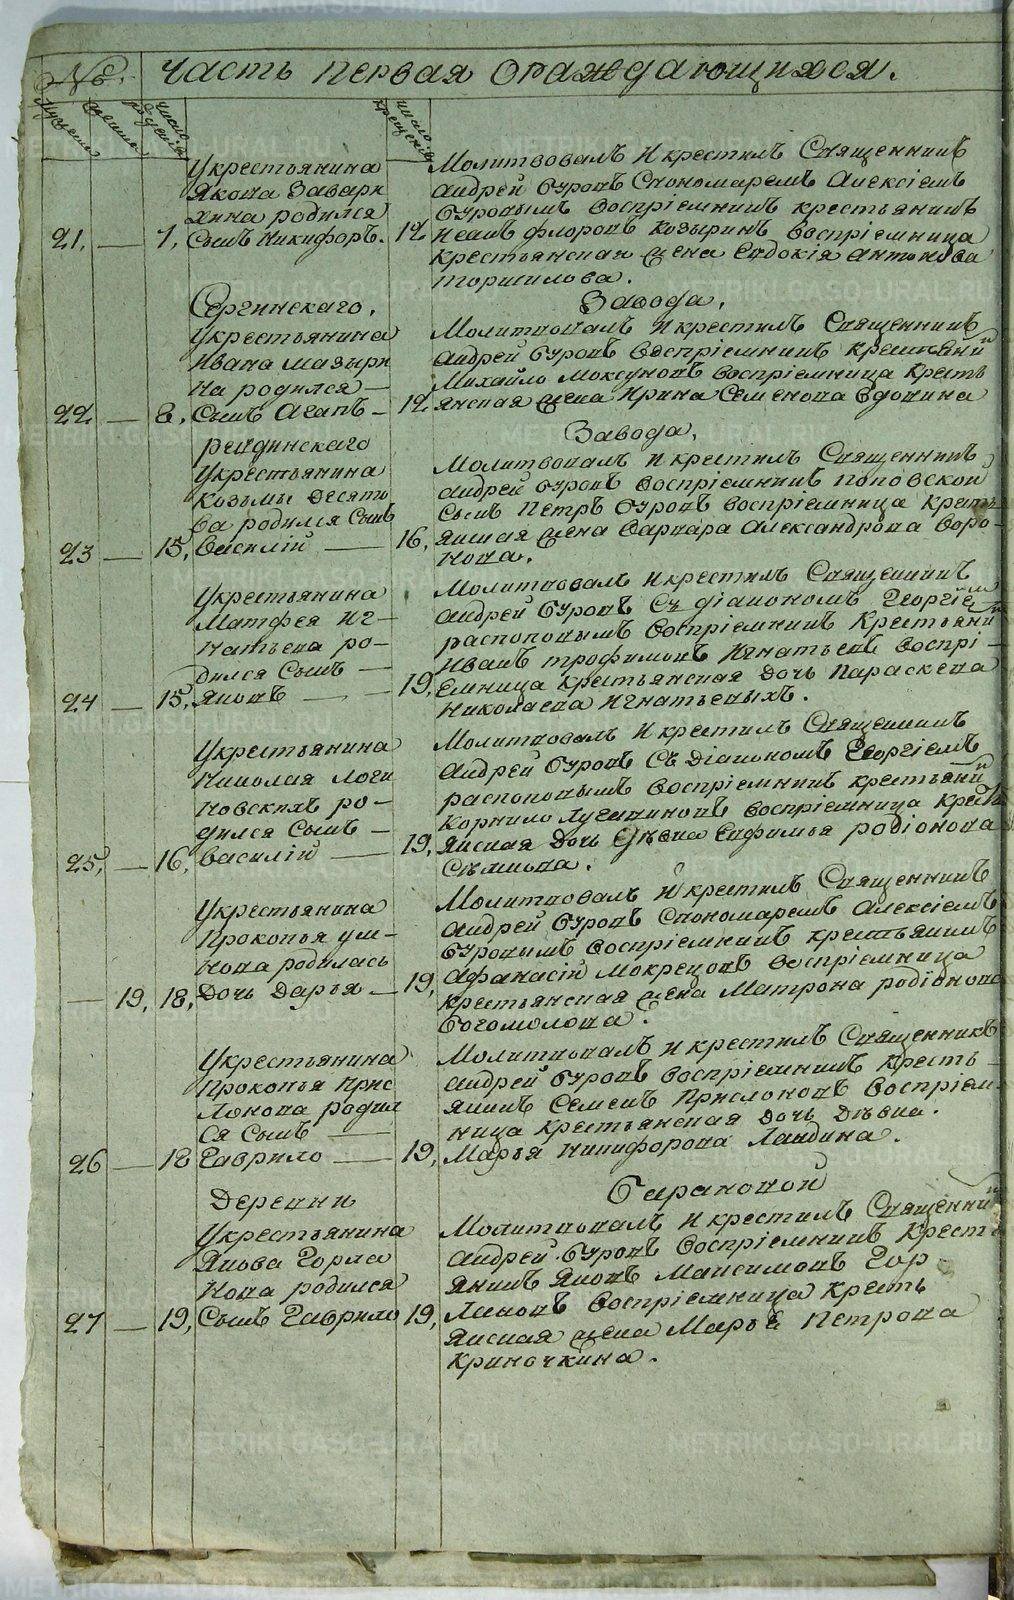 №. Часть первая ораждающихся.
мужеска женска число рождения число крещения
Укрестьянина
Якова Заварн
хина родился
21, — 7, Сынъ Никифоръ. 12
Молитвовалъ И крестилъ Священникъ
Андрей буровъ Спономаремъ Алексiемъ
буровымъ воспрiемникъ крестьянинъ
Исакъ флоровъ Козыринъ воспрiемница
Крестьянская жена Евдокiя антонова
торшилова.
Сергинскаго, Завода,
Укрестьянина
Ивана мазыри
на родился —
22 — 8, Сынъ Агапъ — 12
Молитвовалъ И крестилъ Священникъ
Андрей буровъ воспрiемникъ крестьянинъ
Михайло Моксуновъ воспрiемница Кресть
янская жена Ирина Семенова Вдовина
ревдинскаго Завода,
Укрестьянина
Козьмы десято
ва родился Сынъ
23 — 15, Василiй — 16,
Молитвовалъ И крестилъ Священникъ
Андрей буровъ воспрiемникъ поповской
Сынъ Петръ буровъ воспрiемница Кресть
янская жена Варвара Александрова Воро
нова.
Укрестьянина
Матфея Иг-
натьева ро-
дился Сынъ —
24 — 15, Яковъ — 19,
Молитвовалъ И крестилъ Священникъ
Андрей буровъ Съ дiакономъ Георгiемъ
распоповымъ воспрiемникъ Крестьянинъ
Иванъ трофимовъ Игнатьевъ воспрi-
емница Крестьянская дочь Параскева
Николаева Игнатьевыхъ.
Укрестьянина
Николая логи
новскихъ ро-
дился Сынъ —
25, — 16, Василiй — 19,
Молитвовалъ И крестилъ Священникъ
Андрей буровъ Съ Дiакономъ Георгiемъ
распоповымъ воспрiемникъ крестьянинъ
Корнило Лучаниновъ воспрiемница Кресть
янская Дочь Девка Евфимья родiонова
Укрестьянина
Прокопья
нова родилась
— 19, 18, Дочь Дарья — 19,
Молитвовалъ И крестилъ Священникъ
Андрей буровъ Спономаремъ Алексiемъ
буровымъ воспрiемникъ крестьянинъ
Афанасiй Мокрецовъ воспрiемница
крестьянская жена Матрона родiонова
богомолова.
Укрестьянина
Прокопья Прис
лонова родил
ся Сынъ —
26 — 18 Гаврило — 19,
Молитвовалъ И крестилъ Священникъ
Андрей буровъ воспрiемникъ Кресть-
янинъ Семенъ Прислоновъ воспрiем-
ница крестьянская дочь Девка.
Марья Никифорова Ландина.
Деревни барановой
Укрестьянина
Якова Горла
нова родился
27 — 19, Сынъ Гаврило 19,
Молитвовалъ И крестилъ Священникъ
Андрей буровъ воспрiемникъ Кресть
янинъ Яковъ Максимовъ Гор
лановъ воспрiемница Кресть
янская жена Марья Петрова
Криночкина.
METRIKI.GASO-URAL.RU